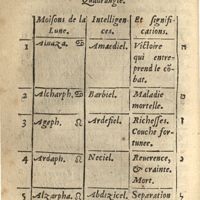 Quadrangle.
Moisons de la Intelligen- Et signifi-
Lune. ces. cations.
1 Ainaza. ♋ Amaediel. Victoire
qui entre-
prend le cõ-
bat.
2 Alcharph. ♋ Barbiel. Maladie
mortelle.
3 Ageph. ♌ Ardefiel. Richesses.
Couche for-
tunee.
4 Ardaph. ♌ Neciel. Reuerence,
& crainte.
Mort.
5 Alzarpha. Abdizicel. Separation